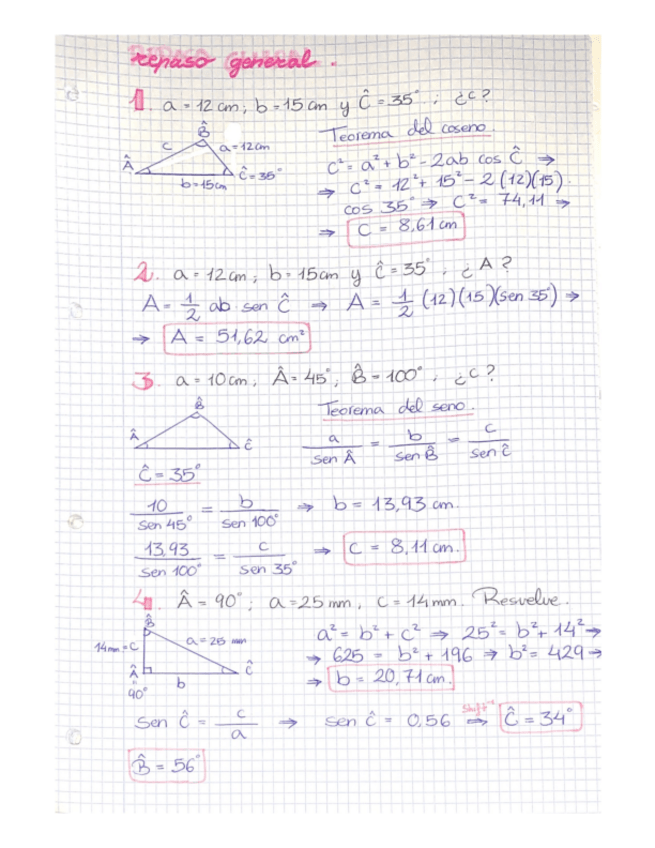 repaso general.
1. a = 12 cm; b = 15 cm y Ĉ = 35°; ¿c?
Teorema del coseno.
B̂
c
a = 12cm
Â
Ĉ = 35°
b = 15cm
c² = a² + b² - 2ab cos Ĉ ⇒
⇒ c² = 12² + 15² - 2(12)(15).
cos 35° ⇒ c² = 74,11 ⇒
⇒ c = 8,61 cm
2. a = 12 cm; b = 15 cm y Ĉ = 35°. ¿A?
A = 1/2 ab sen Ĉ ⇒ A = 1/2 (12)(15)(sen 35°) ⇒
⇒ A = 51,62 cm²
3. a = 10 cm; Â = 45°; B̂ = 100°. ¿c?
Teorema del seno.
B̂
Â
Ĉ
a/sen  = b/sen B̂ = c/sen Ĉ
Ĉ = 35°
10/sen 45° = b/sen 100° ⇒ b = 13,93 cm.
13,93/sen 100° = c/sen 35° ⇒ c = 8,11 cm.
4. Â = 90°; a = 25 mm, c = 14 mm. Resuelve.
B̂
14mm = c
a = 25 mm
Â
Ĉ
90°
b
a² = b² + c² ⇒ 25² = b² + 14² ⇒
⇒ 625 = b² + 196 ⇒ b² = 429 ⇒
⇒ b = 20,71 cm.
sen Ĉ = c/a ⇒ sen ĉ = 0,56 shift⁻¹ ⇒ Ĉ = 34°
B̂ = 56°